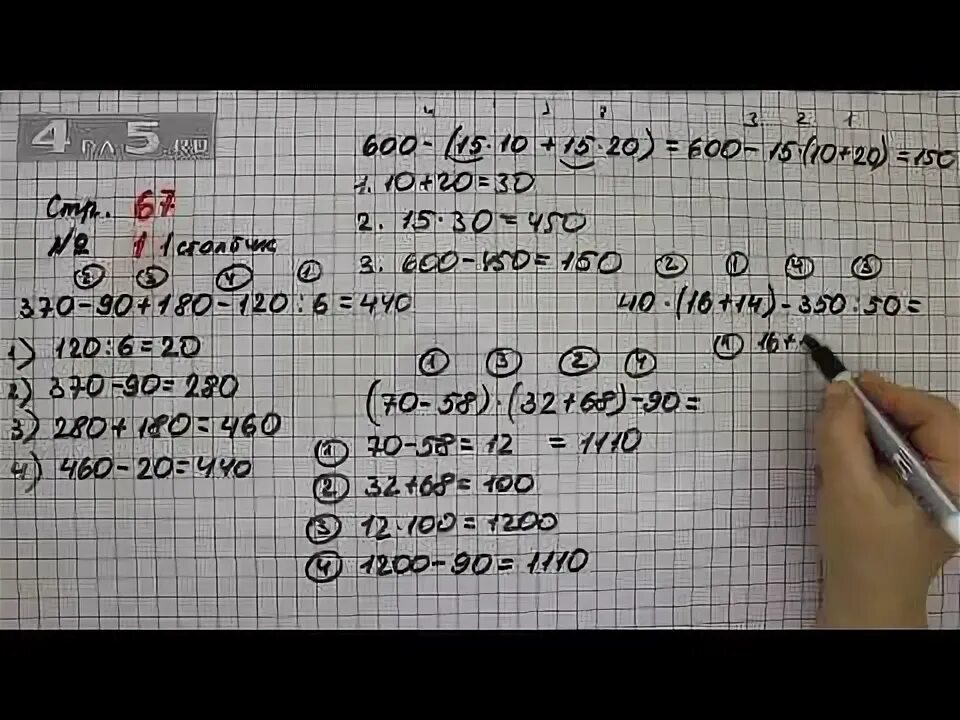 4 ГЛ 5.RU
Стр. 67
№2 1 1 столбик
② ③ ④ ①
370-90+180-120:6=440
1) 120:6=20
2) 370-90=280
3) 280+180=460
4) 460-20=440
3 2 1
600-(15·10+15·20)=600-15·(10+20)=150
1. 10+20=30
2. 15·30=450
3. 600-450=150
① ③ ② ④
(70-58)·(32+68)-90=
① 70-58=12 =1110
② 32+68=100
③ 12·100=1200
④ 1200-90=1110
② ① ④ ③
40·(16+14)-350:50=
① 16+1